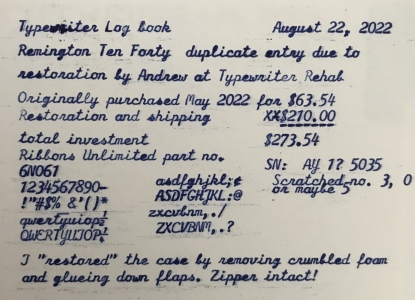 Typewriter Log book August 22, 2022
Remington Ten Forty duplicate entry due to
restoration by Andrew at Typewriter Rehab
Originally purchased May 2022 for $63.54
Restoration and shipping XX$210.00
total investment $273.54
Ribbons Unlimited part no.
6N061 SN: AY 17 5035
1234567890- asdfghjkl;¢ Scratched no. 3, 0
or maybe 5
!"#$% &'()* ASDFGHJKL:@
qwertyuiop½ zxcvbnm,./
QWERTYUIOP¼ ZXCVBNM,.?
I "restored" the case by removing crumbled foam
and glueing down flaps. Zipper intact!